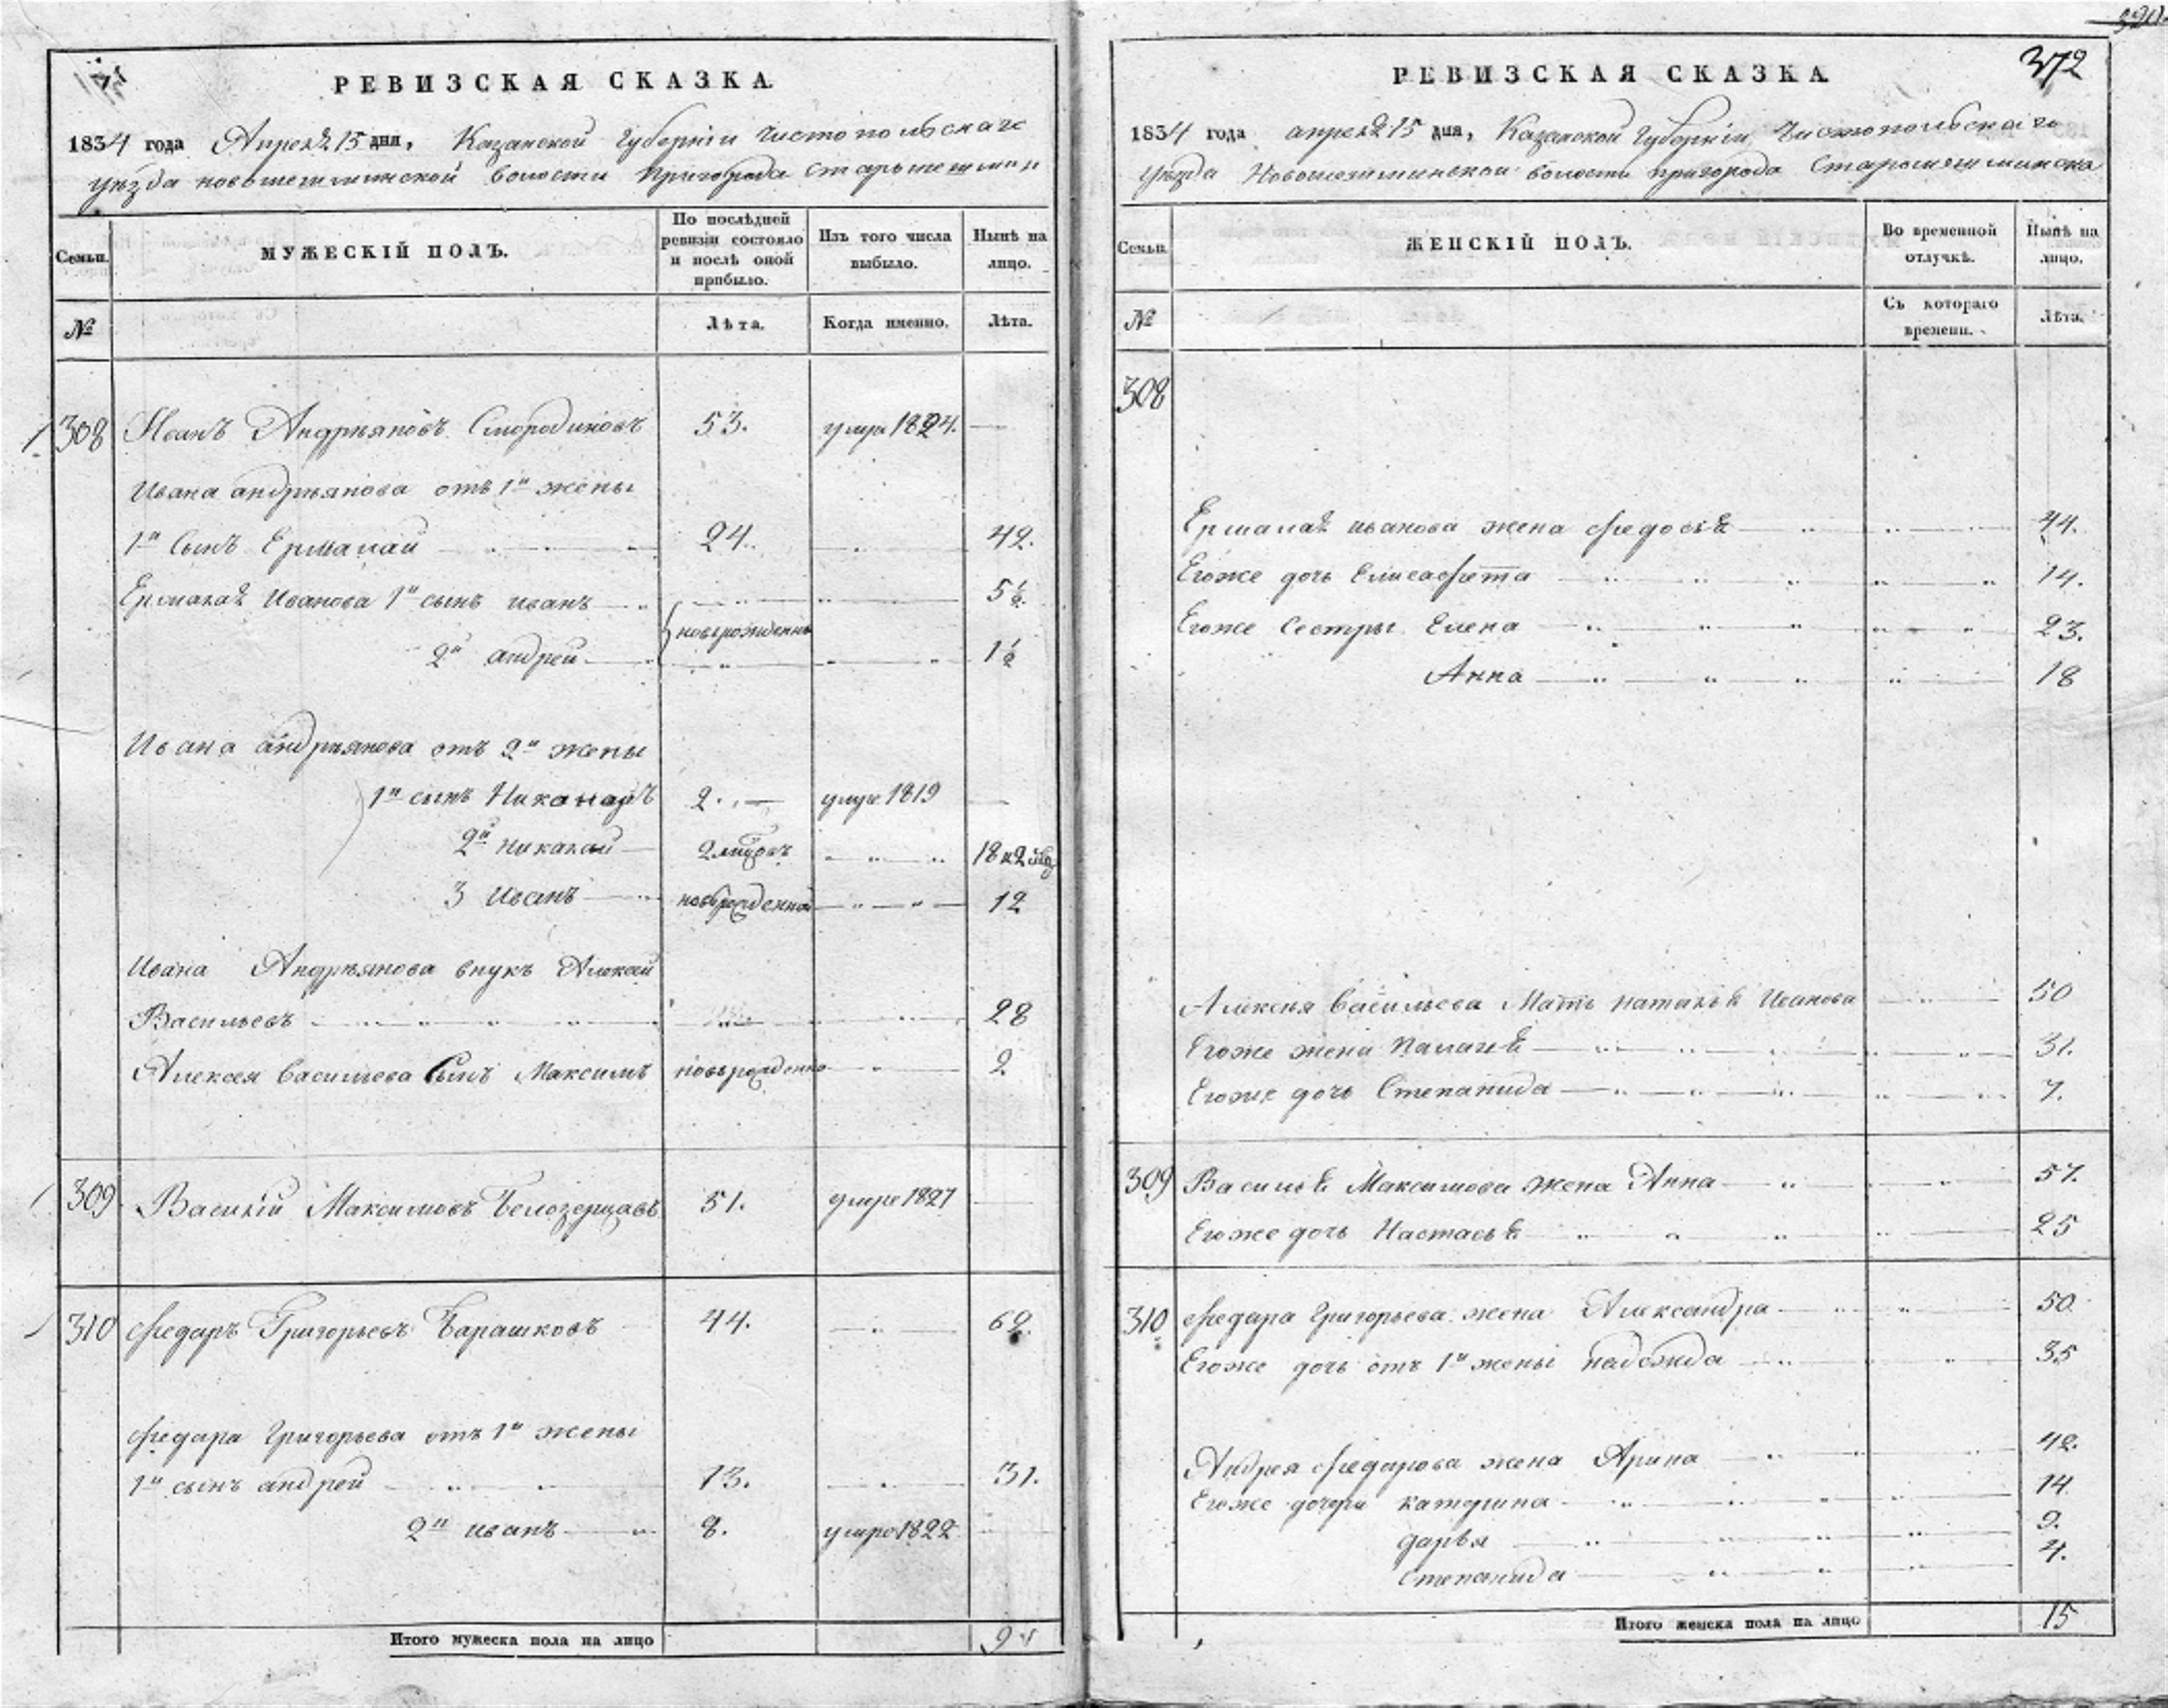 РЕВИЗСКАЯ СКАЗКА
1834 года Апреля 15 дня, Казанской Губерніи Чистопольскаго
уезда новошешминской волости Пригорода старошешминс
Семьи.
МУЖЕСКІЙ ПОЛЪ.
По послѣдней ревизіи состояло и послѣ оной прибыло.
Изъ того числа выбыло.
Нынѣ на лицо.
№
Лѣта.
Когда именно.
Лѣта.
308 Иванъ Андреяновъ Смородиновъ 53. умре 1824. —
Ивана андреянова отъ 1й жены
1й Сынъ Ермалай 24. 42.
Ермалая Иванова 1й сынъ иванъ 5½.
новорожденны
2й андрей 1½
Ивана андреянова отъ 2й жены
1й сынъ Никаноръ 2. умре 1819 —
2й николай 2 18 и 2
3 Иванъ новорожденной 12
Ивана Андреянова внукъ Алексей
Васильевъ 28
Алексея Васильева Сынъ Максимъ новорожденно 2
309 Василій Максимовъ Белозерцавъ 51. умре 1827
310 Федаръ Григорьевъ Барашковъ 44. 62
Федара Григорьева отъ 1й жены
1й сынъ андрей 13. 31.
2й иванъ 8. умре 1822
Итого мужеска пола на лицо 9
372
РЕВИЗСКАЯ СКАЗКА
1834 года апреля 15 дня, Казанской Губерніи, Чистопольскаго
уезда Новошешминской волости пригорода Старошешминска
Семьи.
ЖЕНСКІЙ ПОЛЪ.
Во временной отлучкѣ.
Нынѣ на лицо.
№
Съ котораго времени.
Лѣта.
308
Ермалая иванова жена федосья 44.
Егоже дочь Елисафета 14.
Егоже Сестры Елена 23.
Анна 18
Алексея Васильева Мать наталья Иванова 50
Егоже жена Палагея 31.
Егоже дочь Степанида 7.
309 Василья Максимова жена Анна 57.
Егоже дочь Настасья 25
310 Федара Григорьева жена Александра 50
Егоже дочь отъ 1й жены надежда 35
Андрея Федарова жена Арина 42.
Егоже дочери катерина 14
дарья 9.
степанида 4.
Итого женска пола на лицо 15